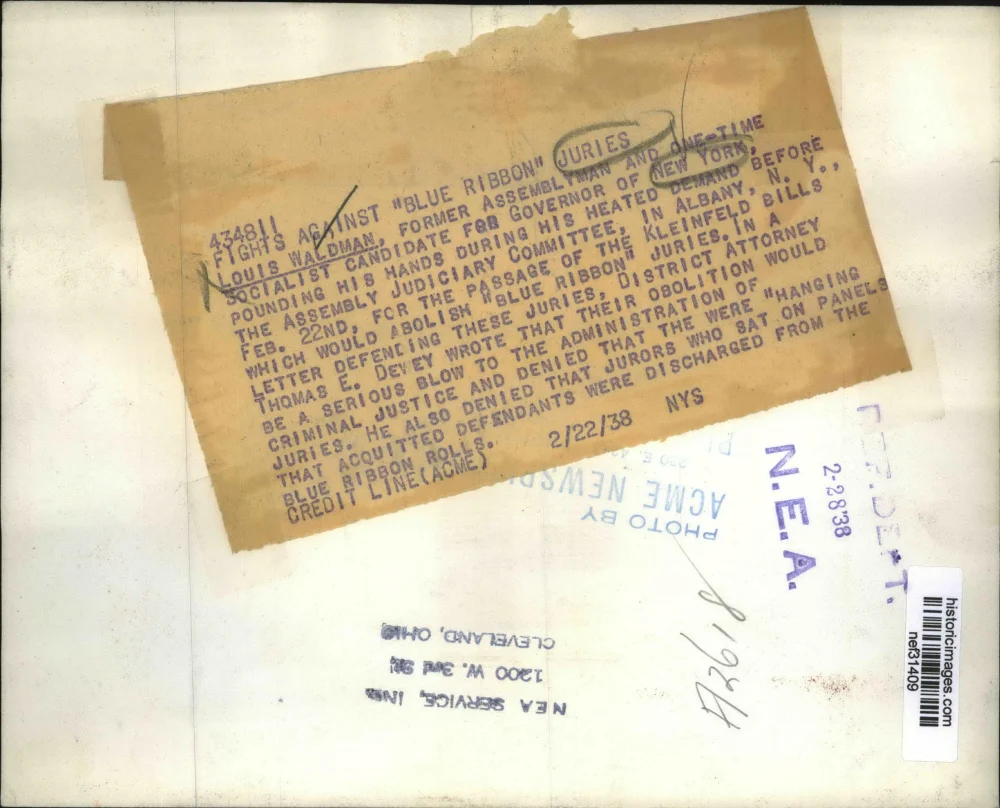 434811
FIGHTS AGAINST "BLUE RIBBON" JURIES
LOUIS WALDMAN, FORMER ASSEMBLYMAN AND ONE-TIME
SOCIALIST CANDIDATE FOR GOVERNOR OF NEW YORK,
POUNDING HIS HANDS DURING HIS HEATED DEMAND BEFORE
THE ASSEMBLY JUDICIARY COMMITTEE, IN ALBANY, N. Y.,
FEB. 22ND, FOR THE PASSAGE OF THE KLEINFELD BILLS
WHICH WOULD ABOLISH "BLUE RIBBON" JURIES. IN A
LETTER DEFENDING THESE JURIES, DISTRICT ATTORNEY
THOMAS E. DEWEY WROTE THAT THEIR OBOLITION WOULD
BE A SERIOUS BLOW TO THE ADMINISTRATION OF
CRIMINAL JUSTICE AND DENIED THAT THE WERE "HANGING
JURIES. HE ALSO DENIED THAT JURORS WHO SAT ON PANELS
THAT ACQUITTED DEFENDANTS WERE DISCHARGED FROM THE
BLUE RIBBON ROLLS.
CREDIT LINE(ACME) 2/22/38 NYS
PHOTO BY
ACME
N.E.A.
2-28'38
NEA SERVICE, INC.
1200 W. 3rd St.
CLEVELAND, OHIO
historicimages.com
nef31409